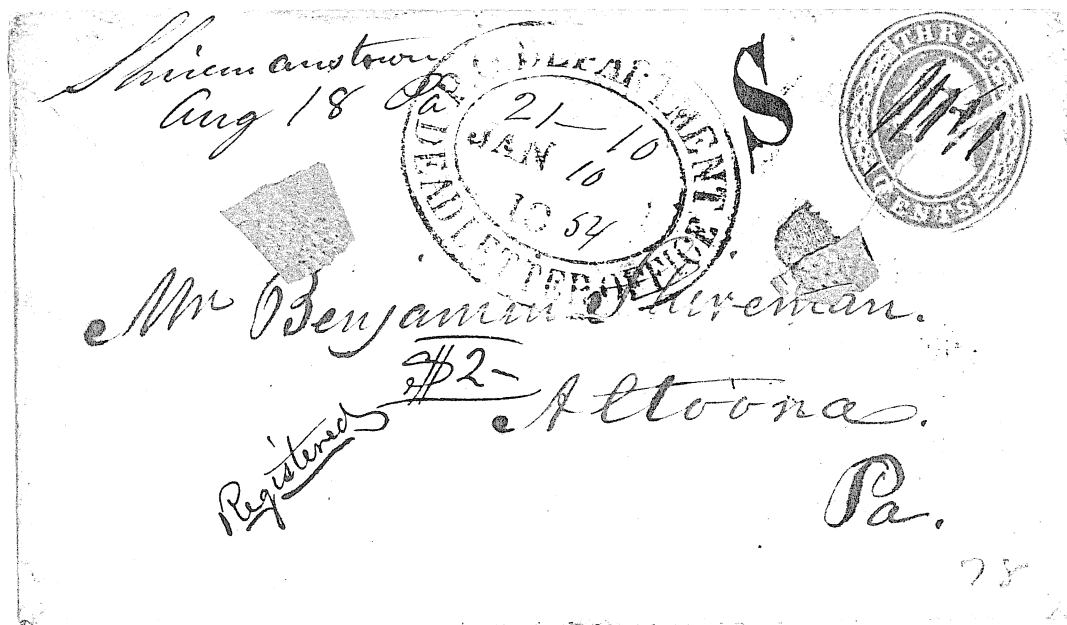 Shiremanstown
Aug 18 Pa
P.O. DEPARTMENT
DEAD LETTER OFFICE
21–10
JAN 10
10 54
S
THREE
CENTS
Mr Benjamin Shireman.
$2–
Altoona.
Registered
Pa.
78